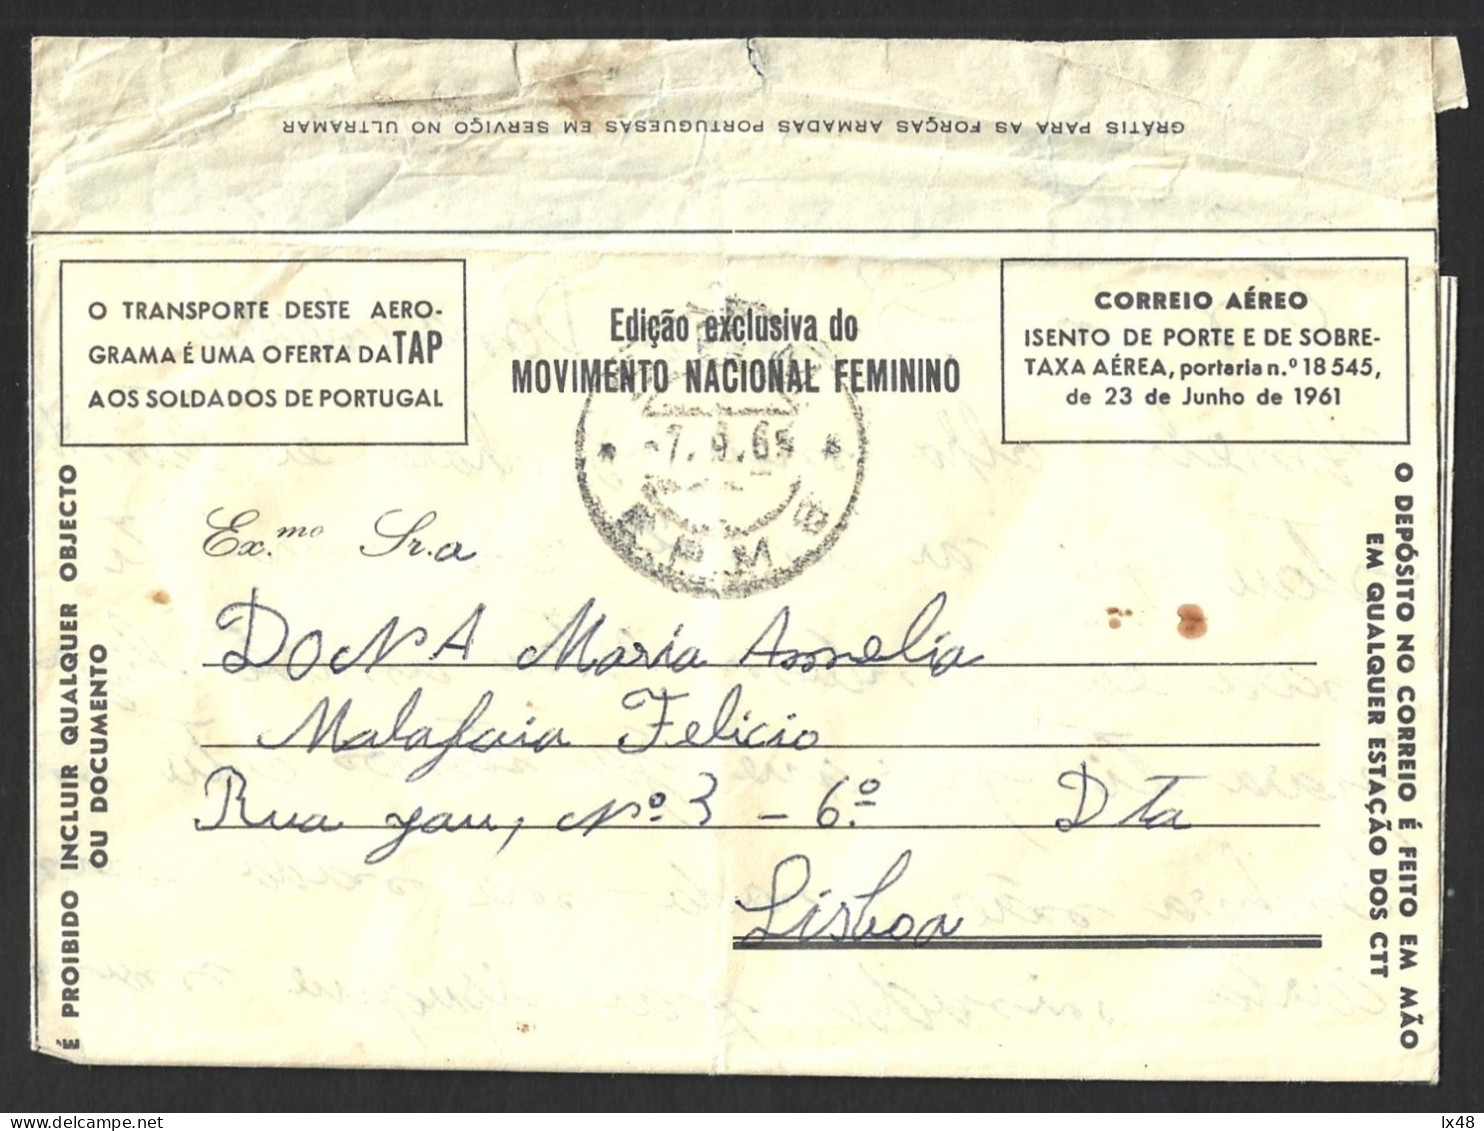 GRÁTIS PARA AS FORÇAS ARMADAS PORTUGUESAS EM SERVIÇO NO ULTRAMAR
O TRANSPORTE DESTE AERO-
GRAMA É UMA OFERTA DA TAP
AOS SOLDADOS DE PORTUGAL
Edição exclusiva do
MOVIMENTO NACIONAL FEMININO
CORREIO AÉREO
ISENTO DE PORTE E DE SOBRE-
TAXA AÉREA, portaria n.º 18 545,
de 23 de Junho de 1961
É PROIBIDO INCLUIR QUALQUER OBJECTO
OU DOCUMENTO
-7.9.65
Ex.mo Sr.a
DONA Maria Amelia
Malafaia Felicio
Rua Jau, Nº 3 - 6.º Dta
Lisboa
O DEPÓSITO NO CORREIO É FEITO EM MÃO
EM QUALQUER ESTAÇÃO DOS CTT
lx48